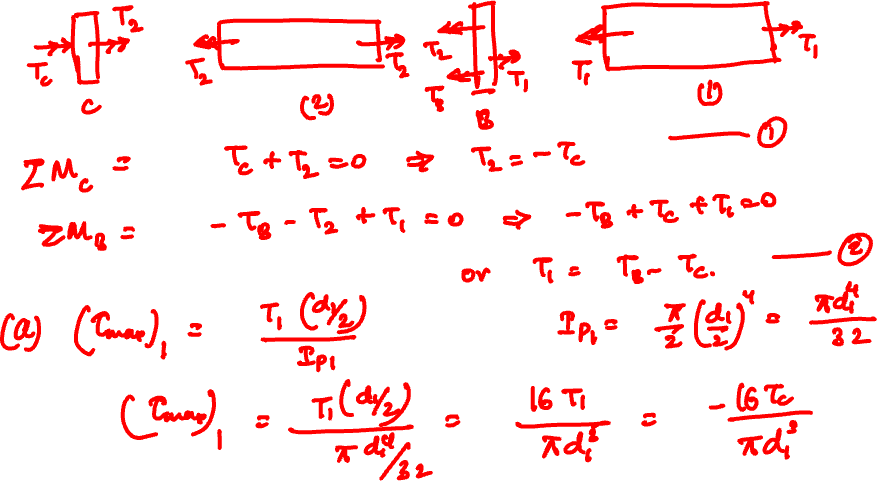 T_C T_2 T_2 T_2 T_2 T_B T_1 T_1 T_1
C (2) B (1)
ΣM_C = T_C + T_2 = 0 ⇒ T_2 = -T_C —— ①
ΣM_B = -T_B - T_2 + T_1 = 0 ⇒ -T_B + T_C + T_1 = 0
or T_1 = T_B - T_C. —— ②
(a) (τ_max)_1 = T_1 (d_1/2) / I_P1 I_P1 = π/2 (d_1/2)^4 = πd_1^4 / 32
(τ_max)_1 = T_1 (d_1/2) / (πd_1^4/32) = 16 T_1 / πd_1^3 = -16 T_C / πd_1^3